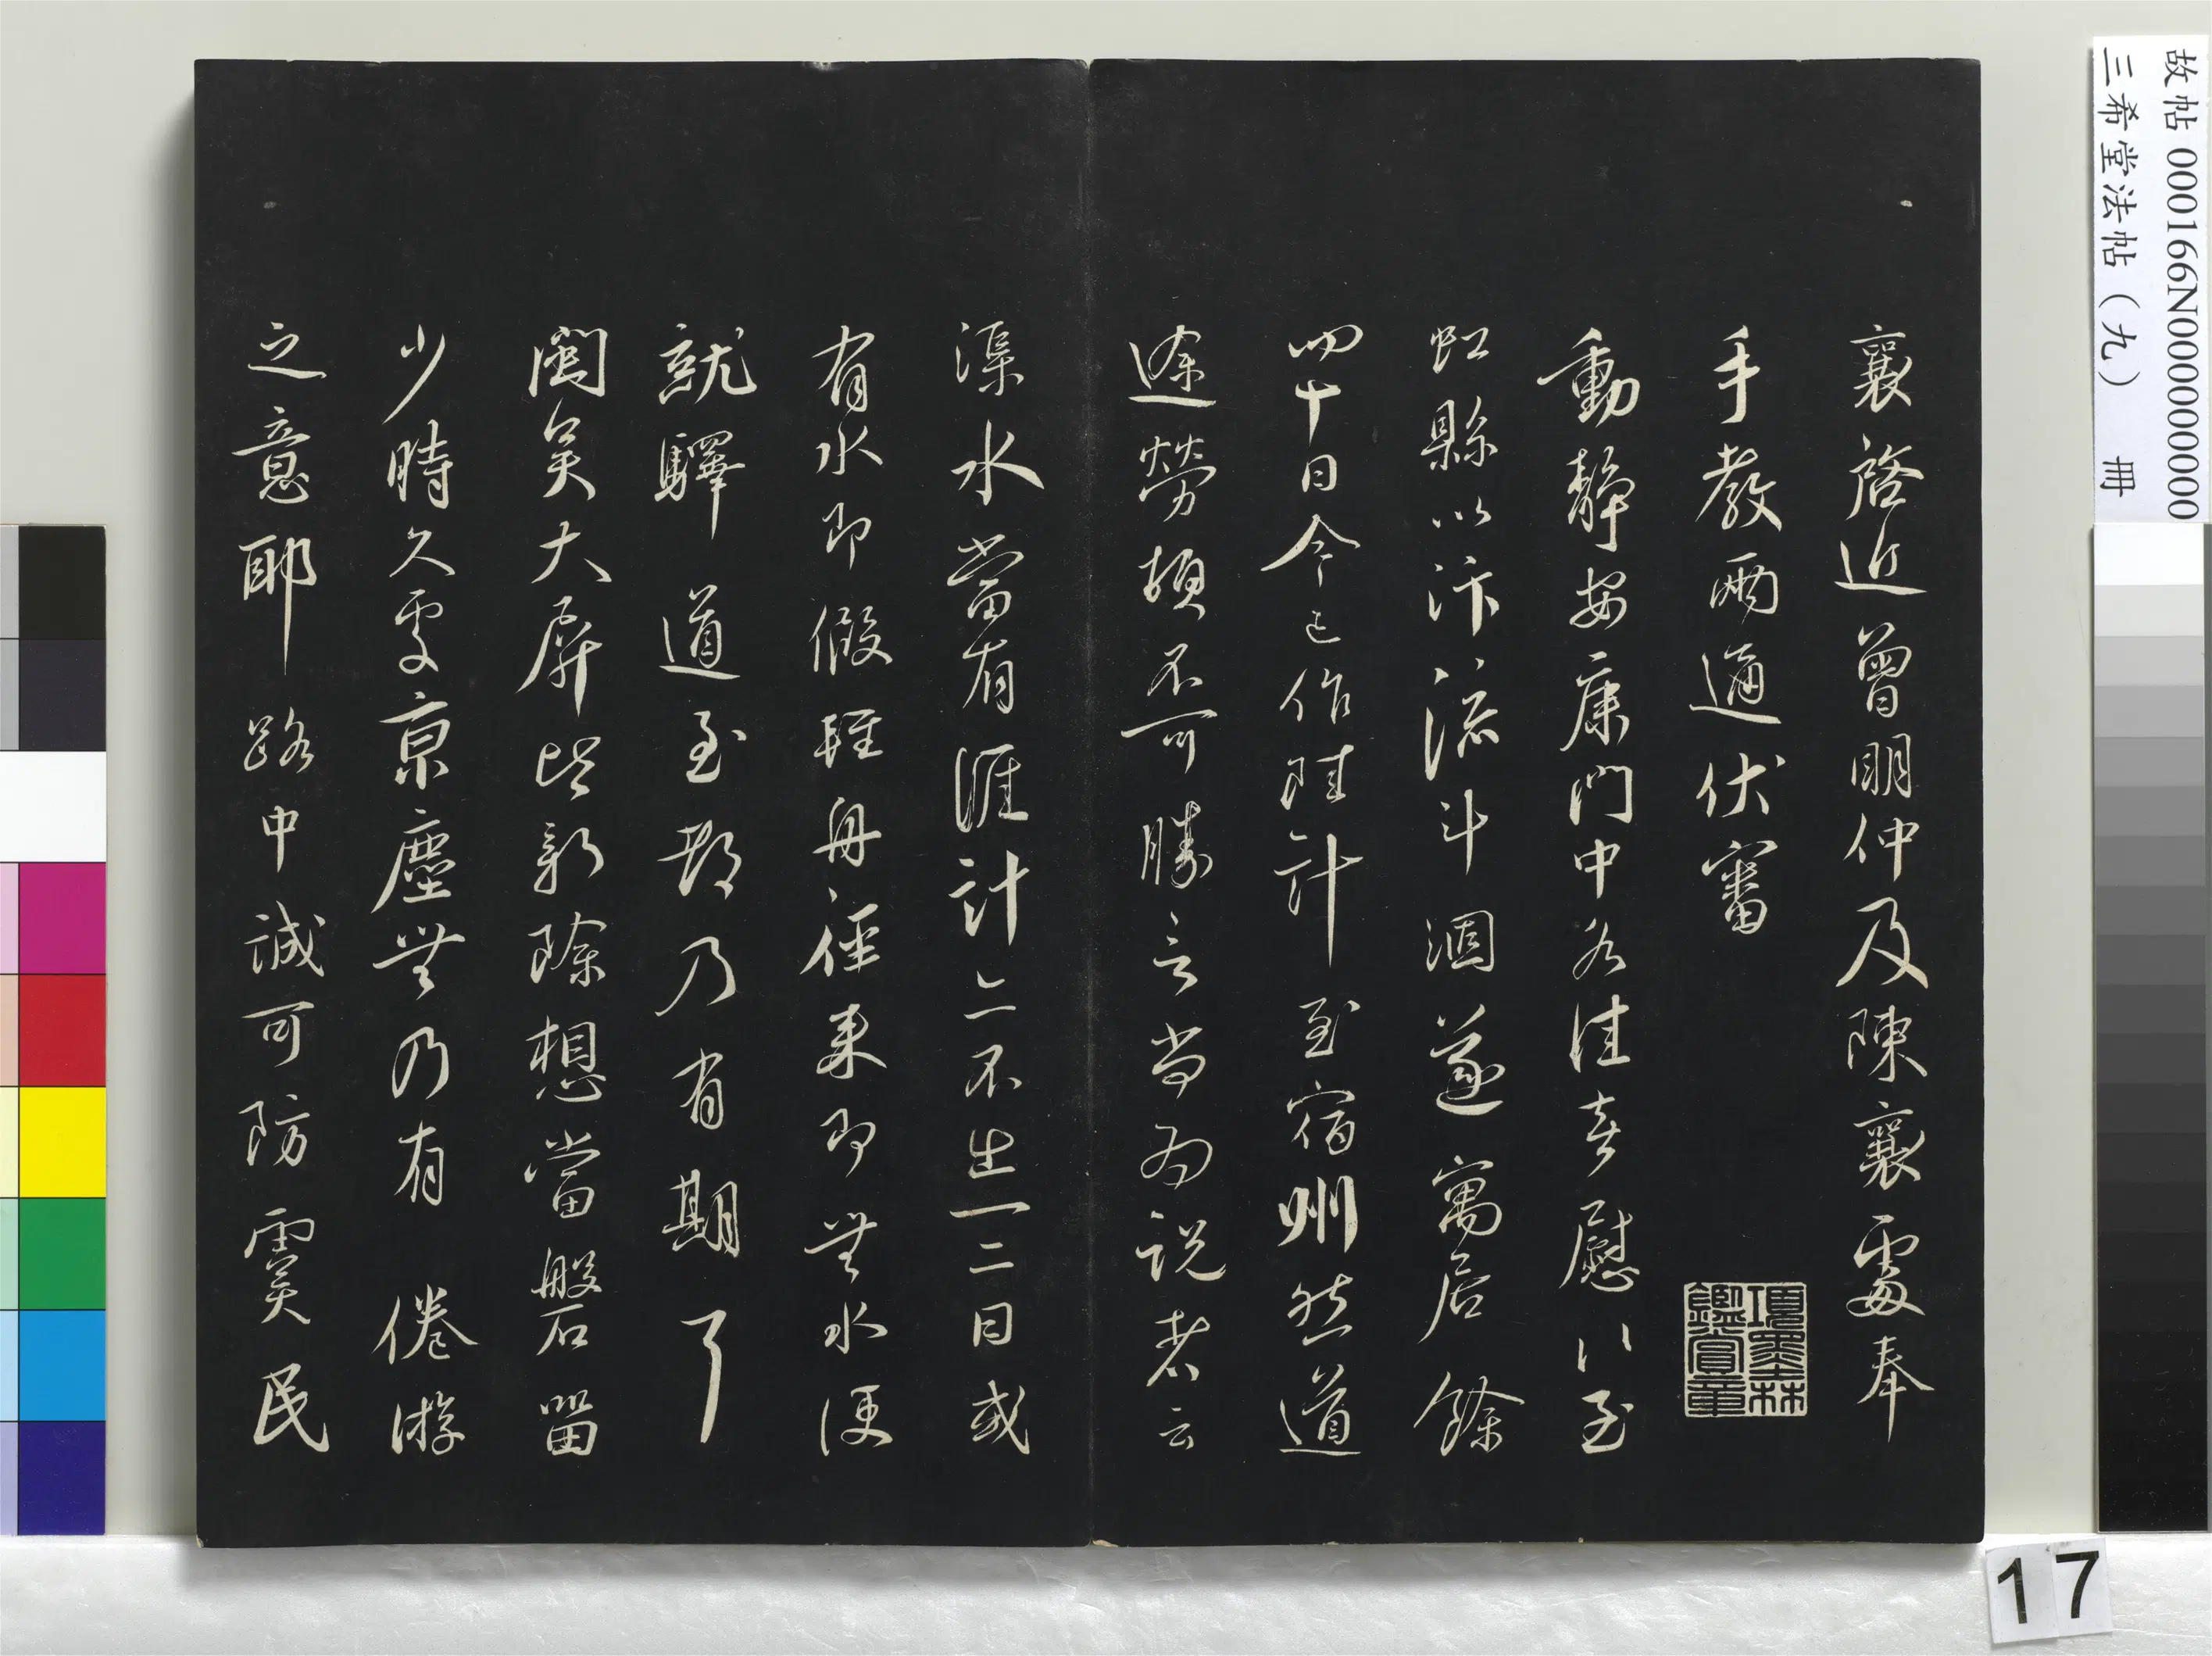 襄啓近曾明仲及陳襄處奉
手教兩通伏審
項墨林
鑑賞章
動靜安康門中各佳喜慰以至
虹縣以汴流斗涸遂寓居餘
四十日今已作陸計至宿州然道
途勞頓不可勝言尚為説者云
渠水當有涯計亦不出一二日或
有水即假輕舟徑來即無水便
就驛道至都乃有期耳
閩吳大屏皆新除想當磐留
少時久處京塵無乃有倦游
之意耶路中誠可防虞民
故帖 000166N000000000
三希堂法帖（九）冊
17